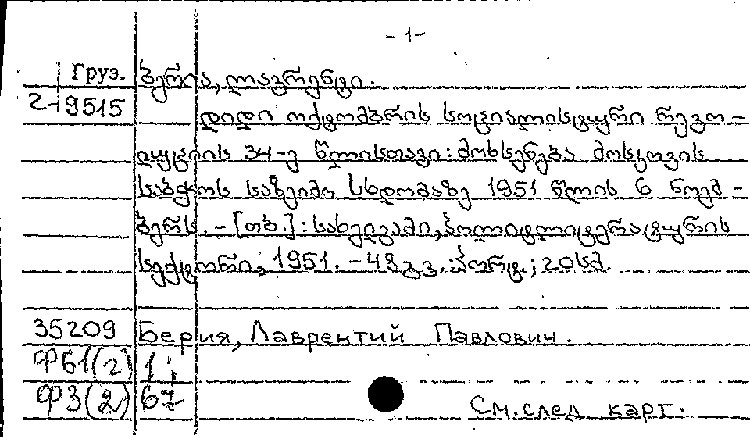 -1-
Груз. ბერია, ლავრენტი.
2-9515 დიდი ოქტომბრის სოციალისტური რევო-
ლუციის 34-ე წლისთავი: მოხსენება მოსკოვის
საბჭოს საზეიმო სხდომაზე 1951 წლის 6 ნოემ-
ბერს. - [თბ.]: სახელგამი, პოლიტლიტერატურის
სექტორი, 1951. - 48 გვ. : პორტ.; 20 სმ.
35209 Берия, Лаврентий Павлович.
ФБ1(2) 1;
ФЗ(2) 67
См. след карт.